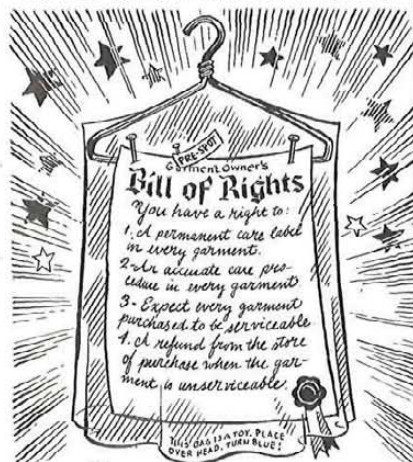 PRE-SPOT
Garment Owner's
Bill of Rights
You have a right to:
1. A permanent care label
in every garment.
2 - An accurate care pro-
cedure in every garment
3 - Expect every garment
purchased to be serviceable
4. A refund from the store
of purchase when the gar-
ment is unserviceable.
THIS BAG IS A TOY. PLACE
OVER HEAD, TURN BLUE!